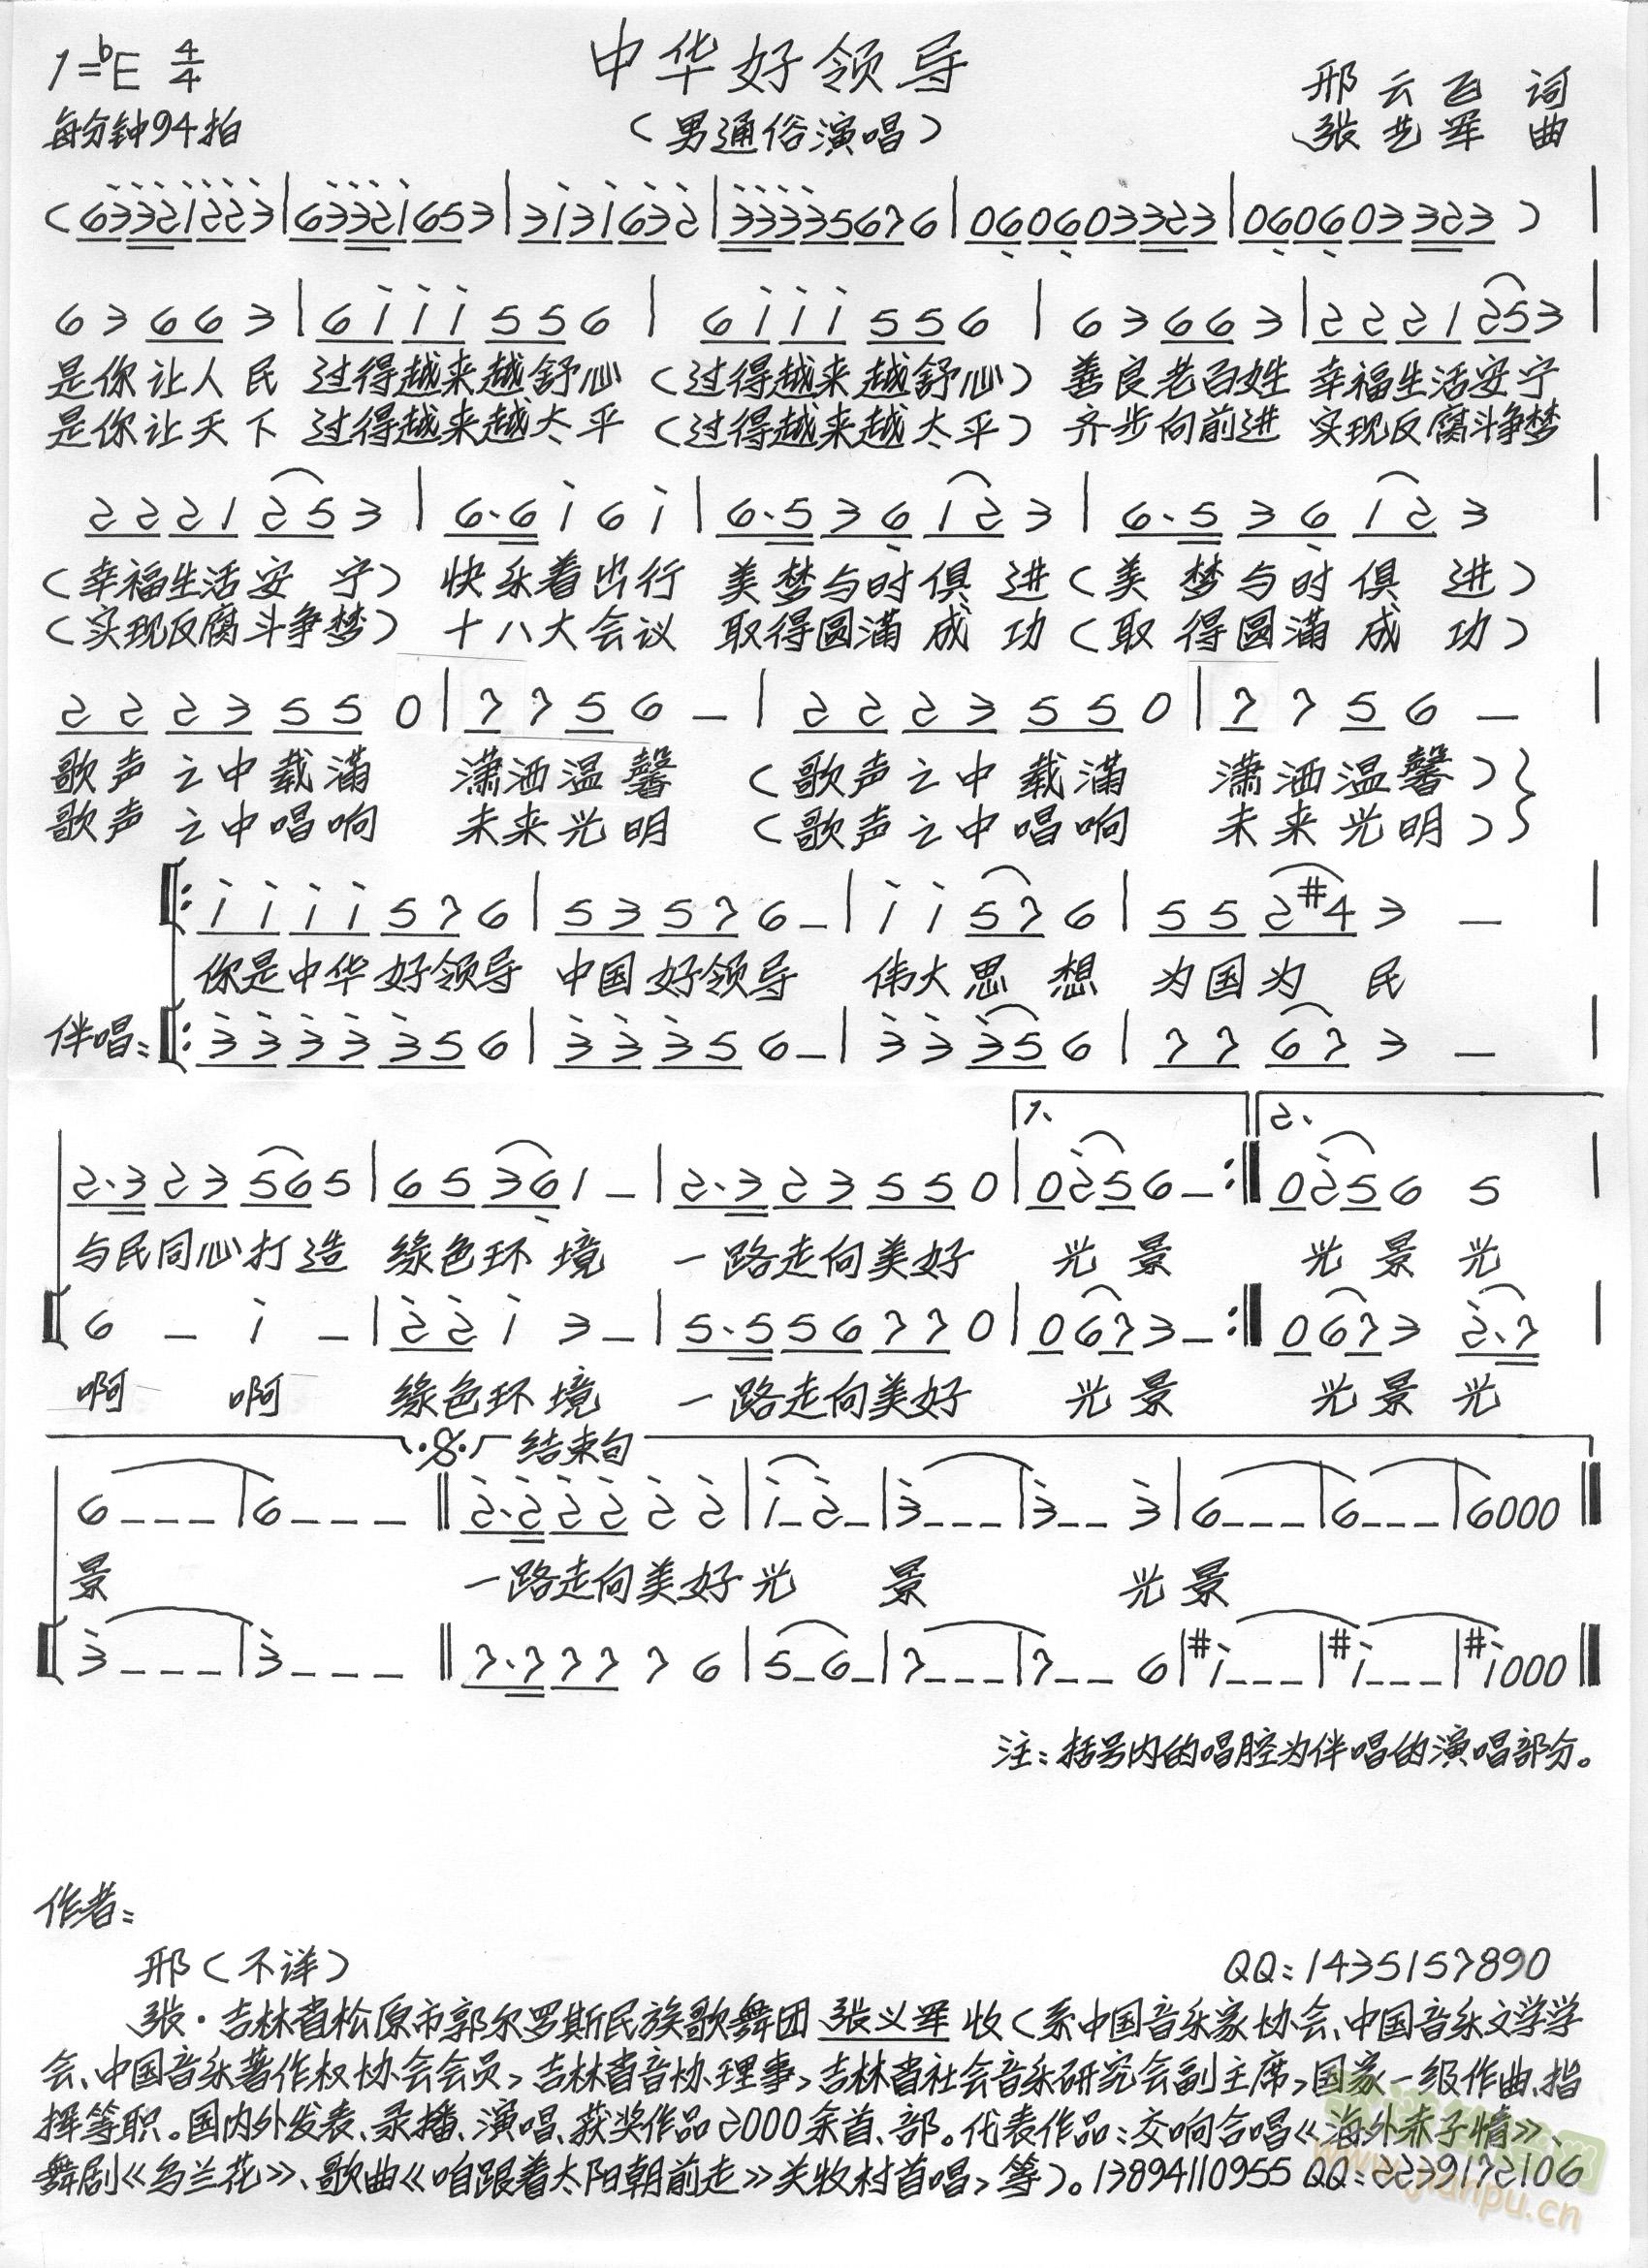 中华好领导
1=♭E 4/4
(男通俗演唱)
邢云飞 词
每分钟94拍
张艺军 曲
(6 3 3 2 1 2 2 3 | 6 3 3 2 1 6 5 3 | 3 1 3 1 6 3 2 | 3 3 3 3 5 6 7 6 | 0 6 0 6 0 3 3 2 3 | 0 6 0 6 0 3 3 2 3 ) |
6 3 6 6 3 | 6 i i i 5 5 6 | 6 i i i 5 5 6 | 6 3 6 6 3 | 2 2 2 1 2 5 3 |
是你让人民 过得越来越舒心 (过得越来越舒心) 善良老百姓 幸福生活安宁
是你让天下 过得越来越太平 (过得越来越太平) 齐步向前进 实现反腐斗争梦
2 2 2 1 2 5 3 | 6·6 i 6 i | 6·5 3 6 1 2 3 | 6·5 3 6 1 2 3 |
(幸福生活安宁) 快乐着出行 美梦与时俱进 (美梦与时俱进)
(实现反腐斗争梦) 十八大会议 取得圆满成功 (取得圆满成功)
2 2 2 3 5 5 0 | 7 7 5 6 – | 2 2 2 3 5 5 0 | 7 7 5 6 – |
歌声之中载满 潇洒温馨 (歌声之中载满 潇洒温馨)}
歌声之中唱响 未来光明 (歌声之中唱响 未来光明)}
‖: i i i i 5 7 6 | 5 3 5 7 6 – | i i 5 7 6 | 5 5 2 #4 3 – |
你是中华好领导 中国好领导 伟大思想 为国为民
伴唱: ‖: 3 3 3 3 3 5 6 | 3 3 3 5 6 – | 3 3 3 5 6 | 7 7 6 7 3 – |
1、 2、
2·3 2 3 5 6 5 | 6 5 3 6 1 – | 2·3 2 3 5 5 0 | 0 2 5 6 – :‖ 0 2 5 6 5 |
与民同心打造 绿色环境 一路走向美好 光景 光景光
6 – i – | 2 2 i 3 – | 5·5 5 6 7 7 0 | 0 6 7 3 – :‖ 0 6 7 3 2·7 |
啊 啊 绿色环境 一路走向美好 光景 光景光
结束句
6 – – – | 6 – – – ‖ 2·2 2 2 2 2 | i – 2 – | 3 – – – | 3 – – 3 | 6 – – – | 6 – – – | 6 0 0 0 ‖
景 一路走向美好光 景 光景
3 – – – | 3 – – – ‖ 7·7 7 7 7 6 | 5 – 6 – | 7 – – – | 7 – – 6 | #i – – – | #i – – – | #i 0 0 0 ‖
注:括号内的唱腔为伴唱的演唱部分。
作者:
邢(不详) QQ:1435157890
张·吉林省松原市郭尔罗斯民族歌舞团 张义军 收(系中国音乐家协会、中国音乐文学学
会、中国音乐著作权协会会员,吉林省音协理事,吉林省社会音乐研究会副主席,国家一级作曲、指
挥等职。国内外发表、录播、演唱、获奖作品2000余首、部。代表作品:交响合唱《海外赤子情》、
舞剧《乌兰花》、歌曲《咱跟着太阳朝前走》关牧村首唱,等)。13894110955 QQ:2239172106